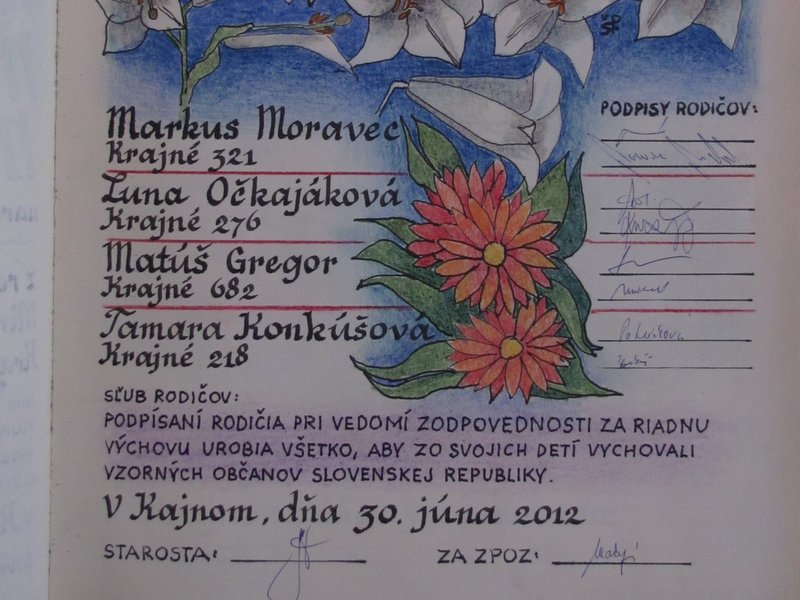 PODPISY RODIČOV:
Markus Moravec
Krajné 321
Luna Očkajáková
Krajné 276
Matúš Gregor
Krajné 682
Tamara Konkúšová
Krajné 218
SĽUB RODIČOV:
PODPÍSANÍ RODIČIA PRI VEDOMÍ ZODPOVEDNOSTI ZA RIADNU
VÝCHOVU UROBIA VŠETKO, ABY ZO SVOJICH DETÍ VYCHOVALI
VZORNÝCH OBČANOV SLOVENSKEJ REPUBLIKY.
V Kajnom, dňa 30. júna 2012
STAROSTA: ZA ZPOZ: